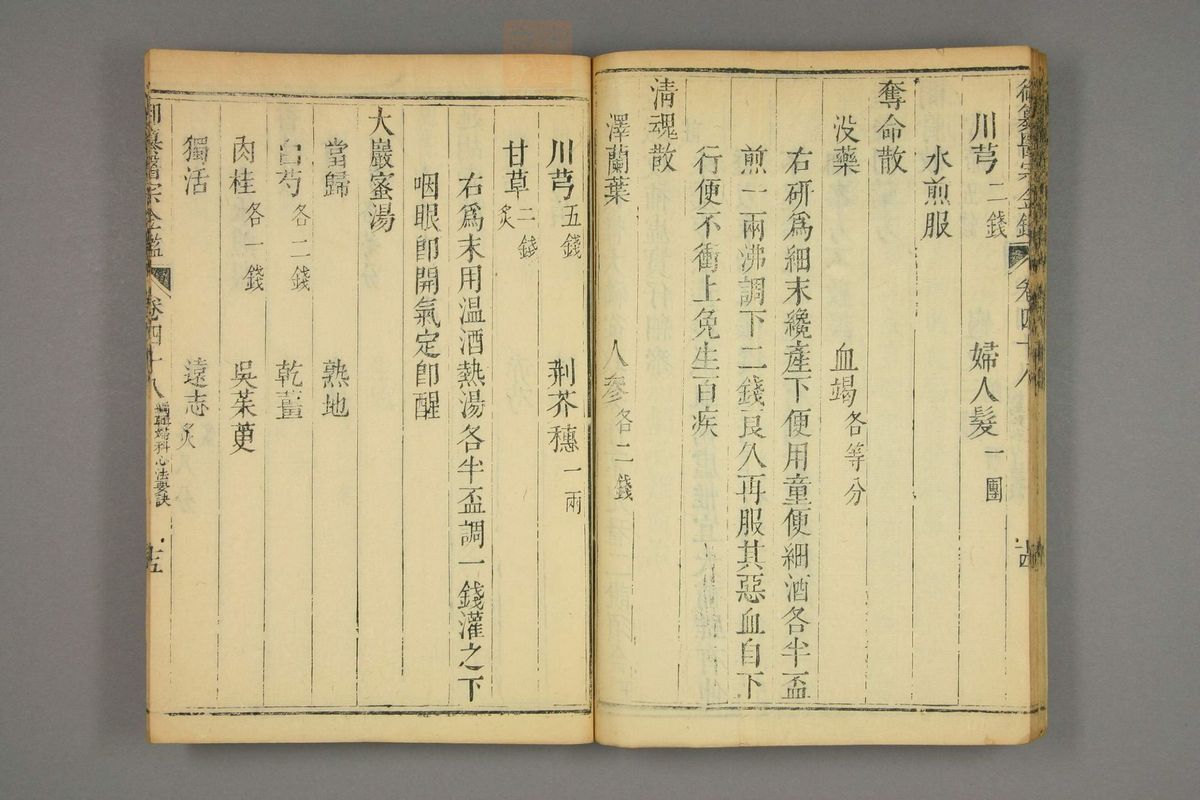 御纂醫宗金鑑 卷四十八 十四
川芎二錢 婦人髮一團
水煎服
奪命散
没藥 血竭各等分
右研爲細末纔產下便用童便細酒各半盃
煎一兩沸調下二錢良久再服其惡血自下
行便不衝上免生百疾
清魂散
澤蘭葉 人參各二錢
川芎五錢 荆芥穗一兩
甘草二錢炙
右爲末用温酒熱湯各半盃調一錢灌之下
咽眼卽開氣定卽醒
大巖蜜湯
當歸 熟地
白芍各二錢 乾薑
肉桂各一錢 吳茱萸
獨活 遠志炙
御纂醫宗金鑑 卷四十八 編輯婦科心法要訣 十五